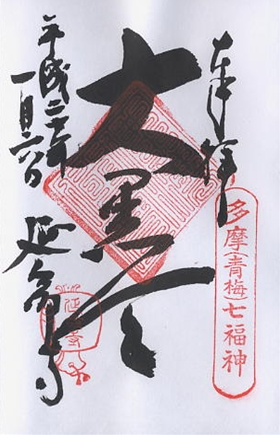 奉拝
多摩青梅七福神
大黒天
平成二十年
一月六日
延命寺